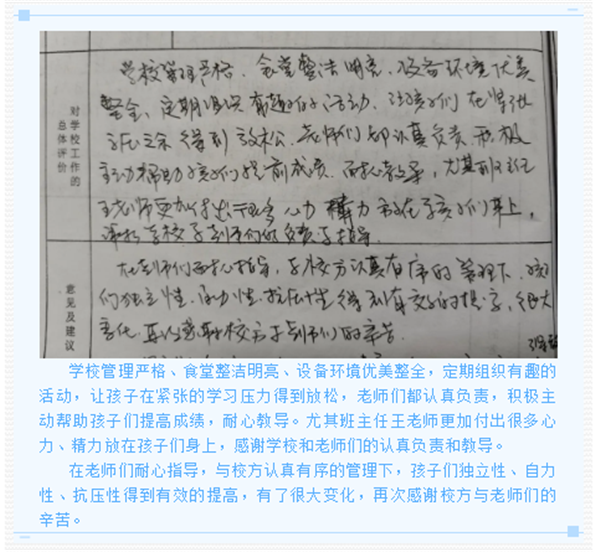 对学校工作的
总体评价
学校管理严格、食堂整洁明亮、设备环境优美
整全、定期组织有趣的活动、让孩子们在紧张
之余得到放松、老师们都认真负责、积极
主动帮助孩子们提高成绩、耐心教导,尤其班主任
王老师更加付出很多心力 精力 放在孩子们身上,
感谢学校和老师们的负责和指导。
意见及建议
在老师们耐心指导,与校方认真有序的管理下,孩子
们独立性、自力性、抗压性得到有效的提高,很大
变化,再次感谢校方与老师们的辛苦
学校管理严格、食堂整洁明亮、设备环境优美整全,定期组织有趣的
活动,让孩子在紧张的学习压力得到放松,老师们都认真负责,积极主
动帮助孩子们提高成绩,耐心教导。尤其班主任王老师更加付出很多心
力、精力放在孩子们身上,感谢学校和老师们的认真负责和教导。
在老师们耐心指导,与校方认真有序的管理下,孩子们独立性、自力
性、抗压性得到有效的提高,有了很大变化,再次感谢校方与老师们的
辛苦。